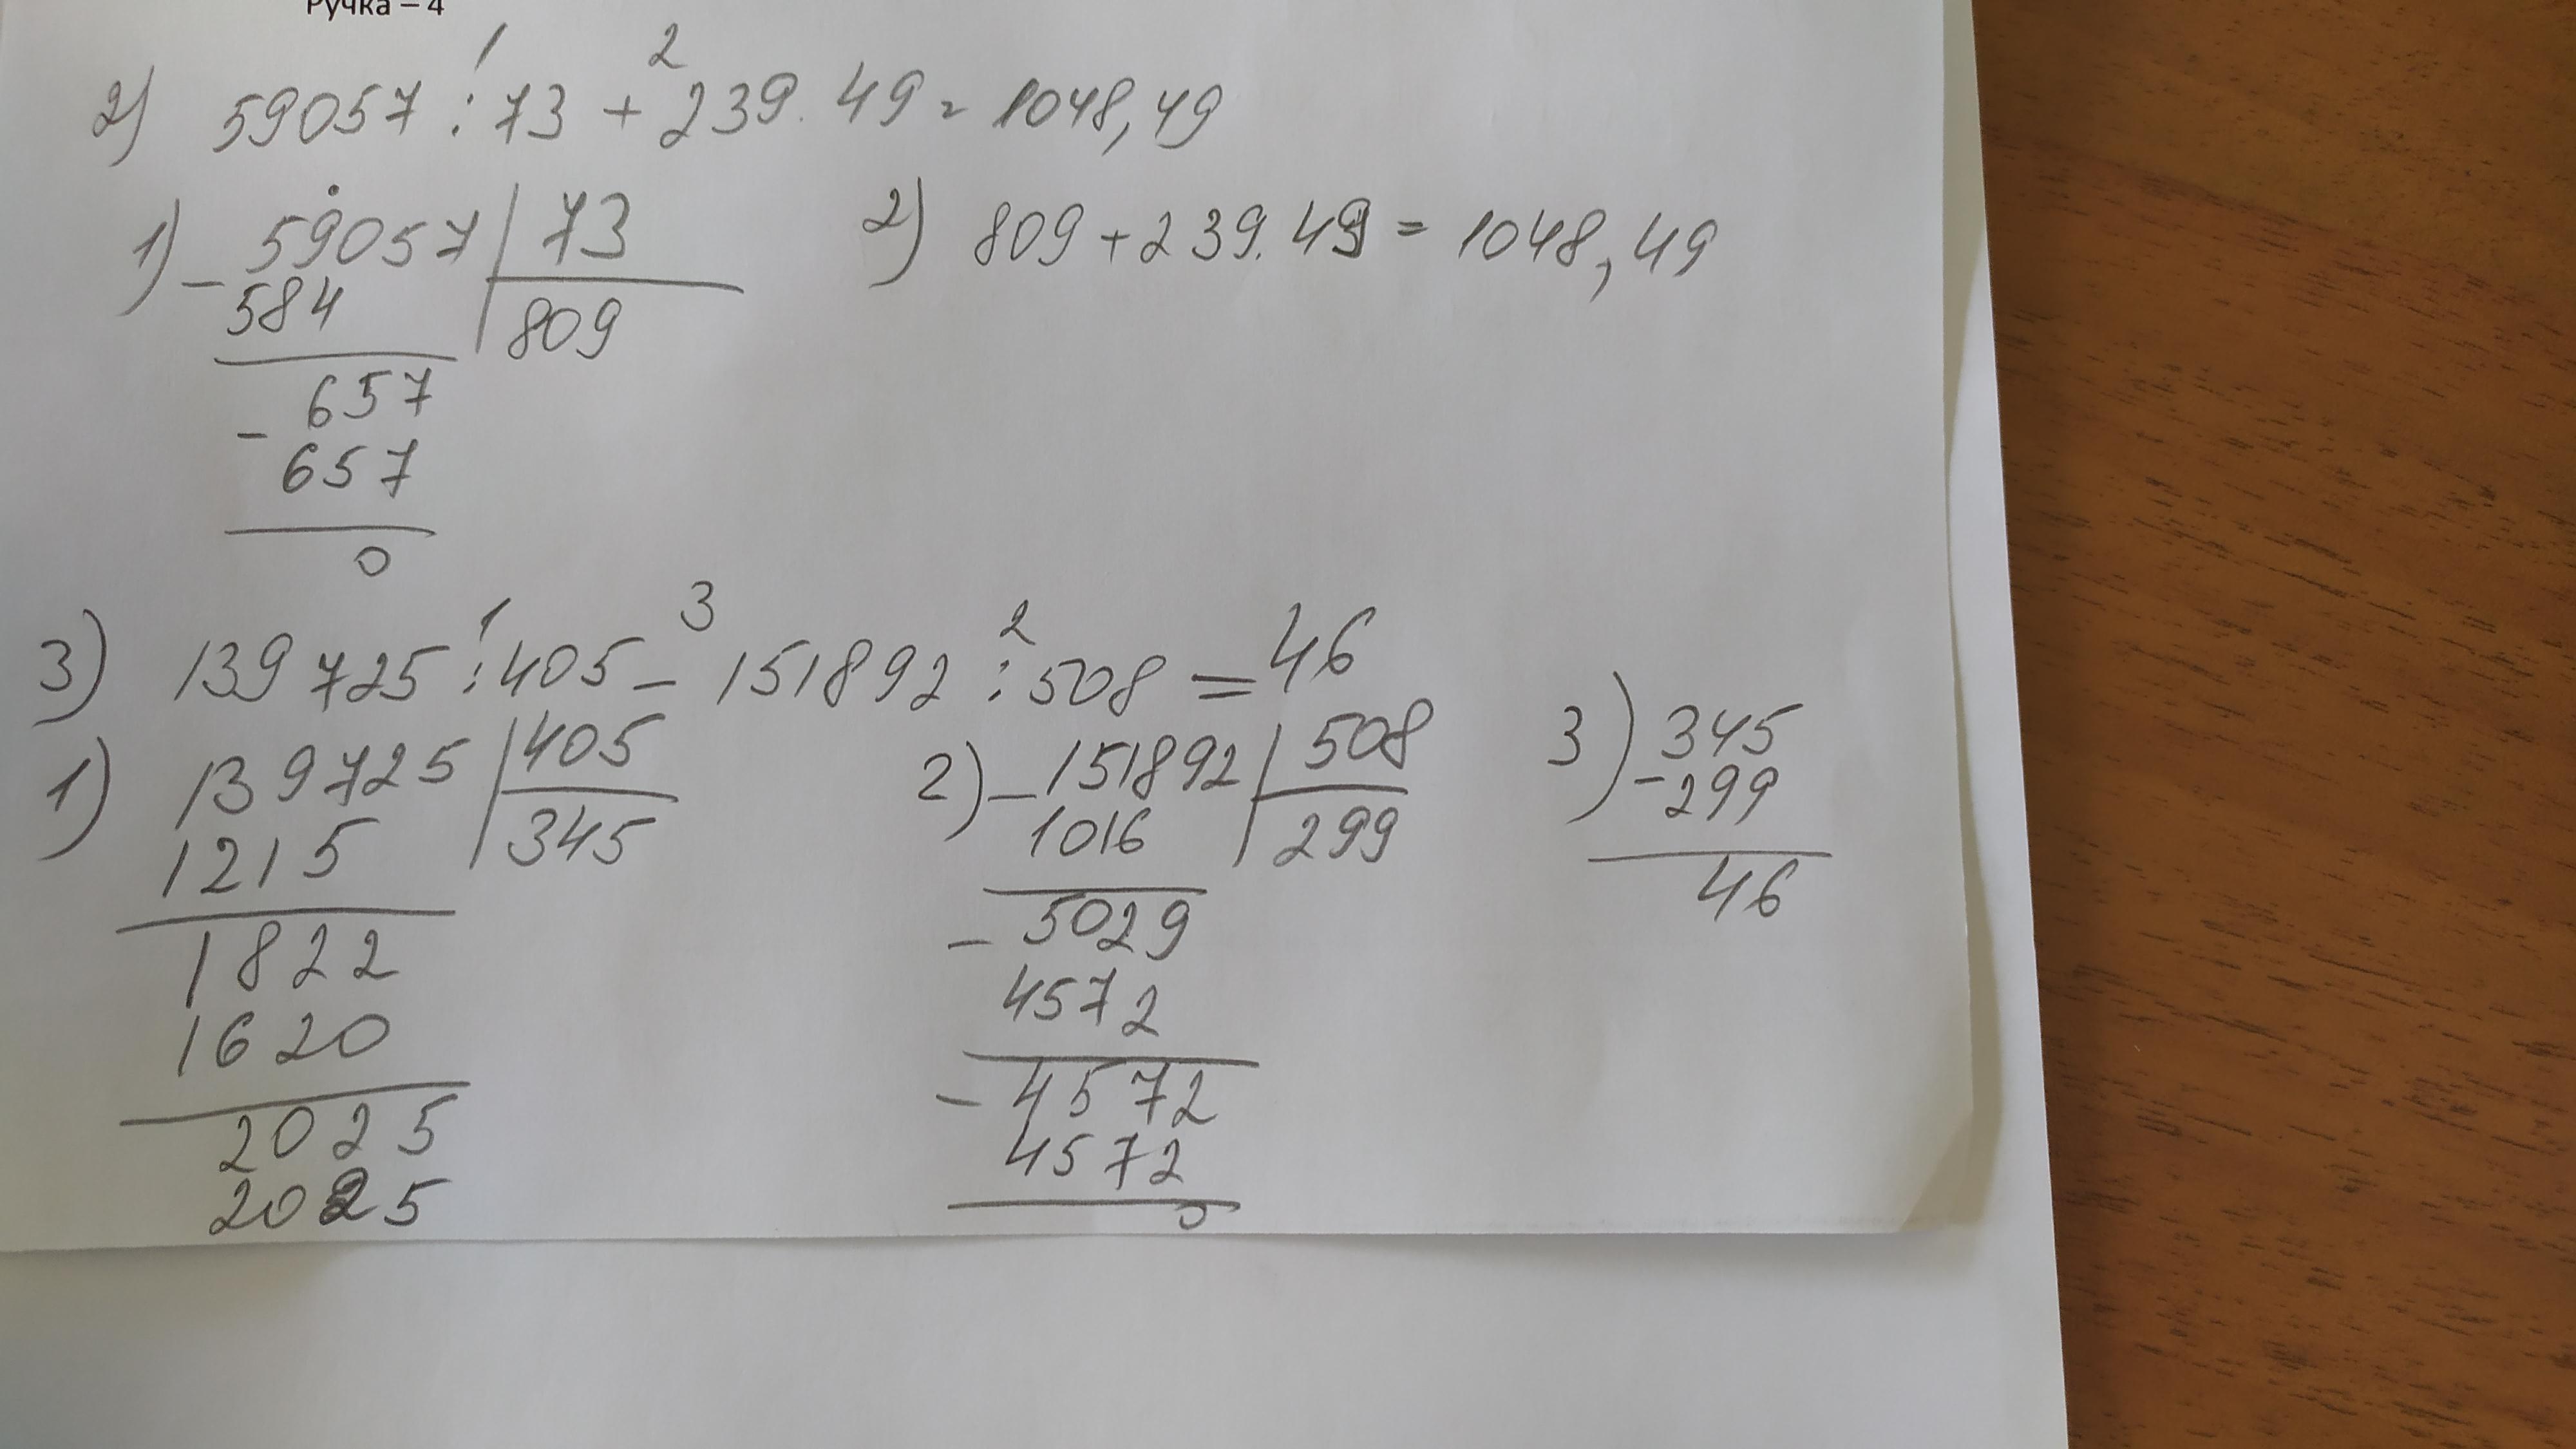 Ручка – 4
1 2
2) 59057 : 73 + 239. 49 = 1048,49
1) – 59057 | 73
584 809
– 657
657
0
2) 809 + 239. 49 = 1048,49
1 3 2
3) 139725 : 405 – 151892 : 508 = 46
1) 139725 | 405
1215 345
1822
1620
2025
2025
2) – 151892 | 508
1016 299
– 5029
4572
– 4572
4572
0
3) 345
– 299
46